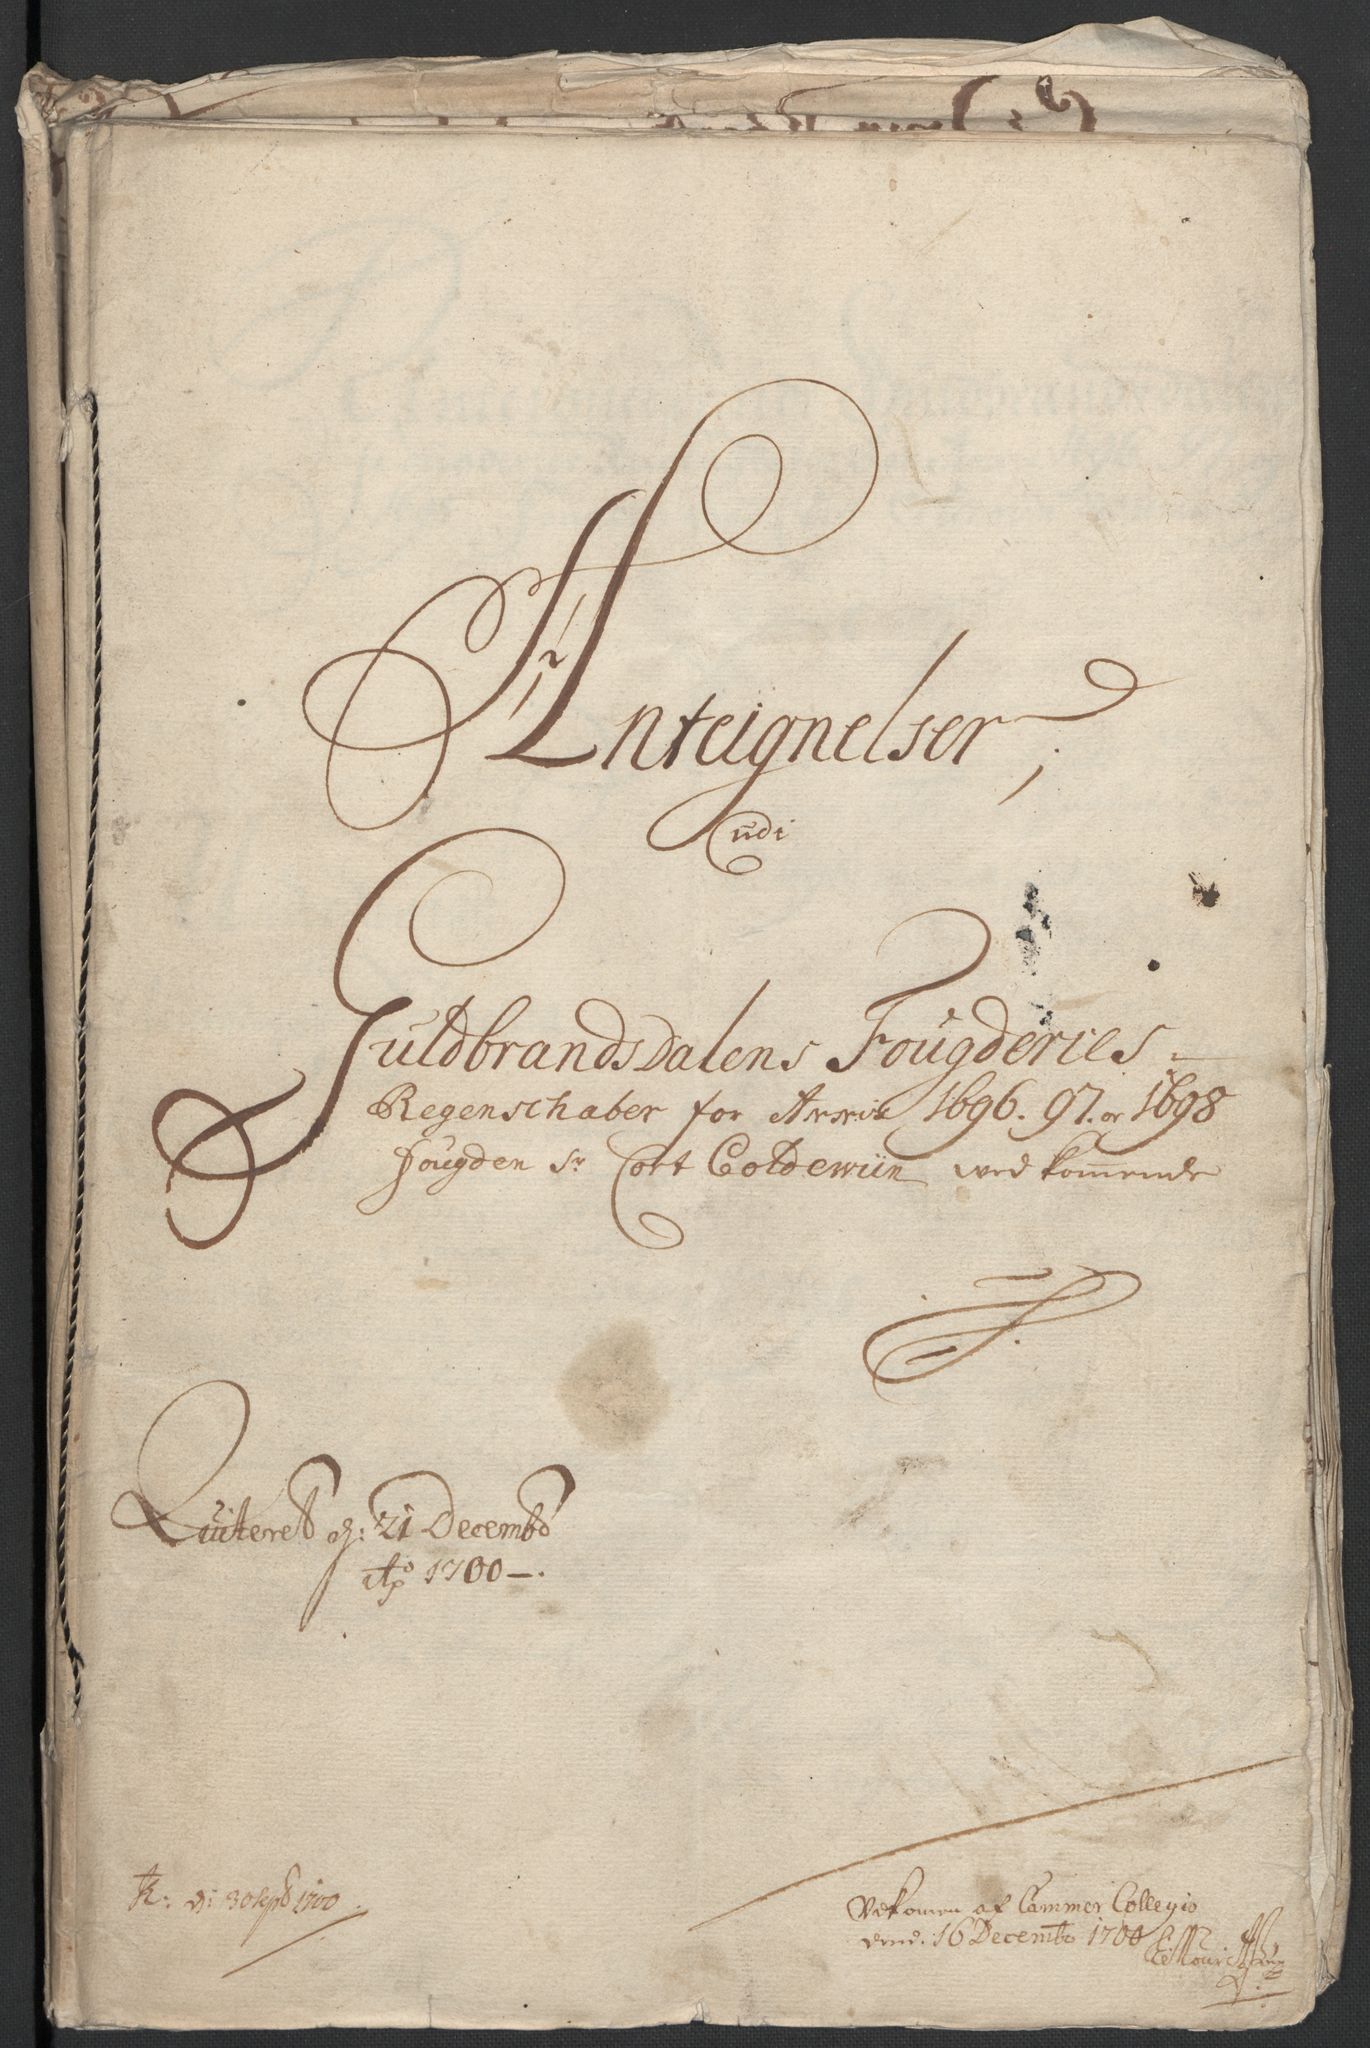 Anteignelser,
udi
Guldbrandsdalens Fougderies
Regenschaber for Aarene 1696. 97. or 1698
fougden Sr Cort Coldewiin ved kommende
Quiteret d: 21 Decembr
Ao 1700
R: d: 30 Sepbr 1700
Bekomen af Cammer Collegio
dend. 16 Decembr 1700